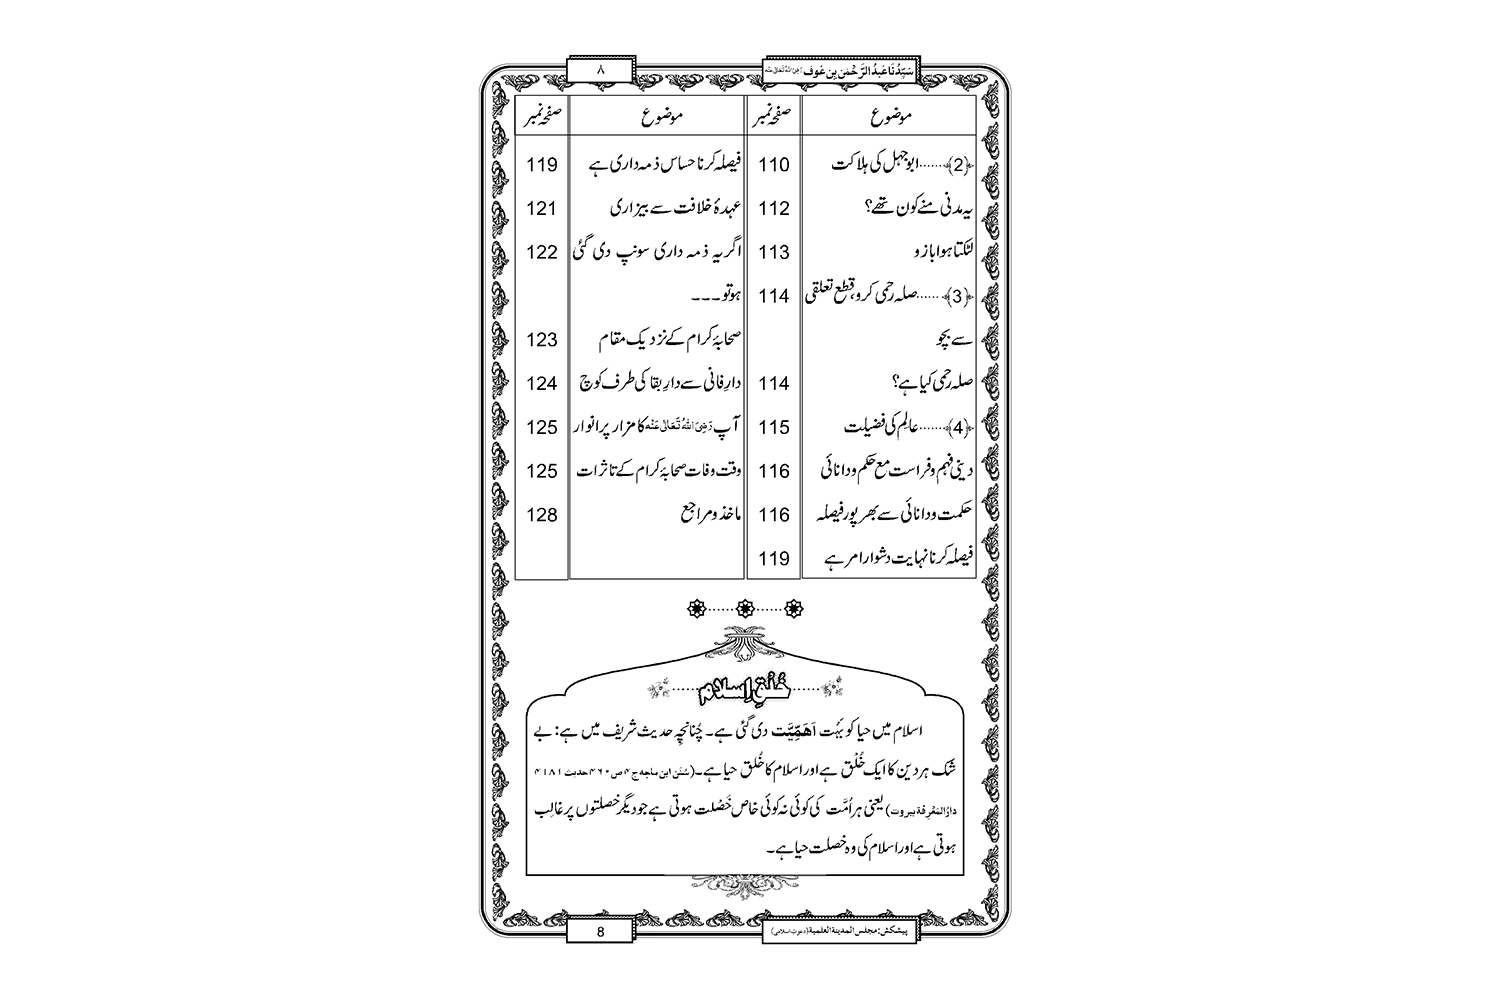 سَیِّدُنَا عَبْدُ الرَّحْمٰن بِن عَوف رَضِیَ اللّٰہُ تَعَالٰی عَنْہ ۸
موضوع صفحہ نمبر موضوع صفحہ نمبر
﴿2﴾......ابوجہل کی ہلاکت 110 فیصلہ کرنا حساس ذمہ داری ہے 119
یہ مدنی منے کون تھے؟ 112 عہدۂ خلافت سے بیزاری 121
لٹکتا ہوا بازو 113 اگر یہ ذمہ داری سونپ دی گئی 122
﴿3﴾......صلہ رحمی کرو، قطع تعلقی 114 ہوتو۔۔۔
سے بچو صحابۂ کرام کے نزدیک مقام 123
صلہ رحمی کیا ہے؟ 114 دارِ فانی سے دارِ بقا کی طرف کوچ 124
﴿4﴾......عالِم کی فضیلت 115 آپ رَضِیَ اللّٰہُ تَعَالٰی عَنْہ کا مزار پر انوار 125
دینی فہم و فراست مع حکم و دانائی 116 وقت وفات صحابۂ کرام کے تاثرات 125
حکمت و دانائی سے بھر پور فیصلہ 116 ماخذ و مراجع 128
فیصلہ کرنا نہایت دشوار امر ہے 119
خُلْقِ اِسلام
اسلام میں حیا کو بَہُت اَھَمِّیَّت دی گئی ہے۔ چُنانچِہ حدیث شریف میں ہے: بے
شک ہر دین کا ایک خُلْق ہے اور اسلام کا خُلق حیا ہے۔(سُنَن ابن ماجہ ج۴ ص۴۶۰ حدیث ۴۱۸۱
دارُ المَعْرِفَۃ بیروت) یعنی ہر اُمَّت کی کوئی نہ کوئی خاص خَصْلت ہوتی ہے جو دیگر خصلتوں پر غالِب
ہوتی ہے اور اسلام کی وہ خصلت حیا ہے۔
پیشکش: مجلس المدینة العلمیة (دعوتِ اسلامی) 8